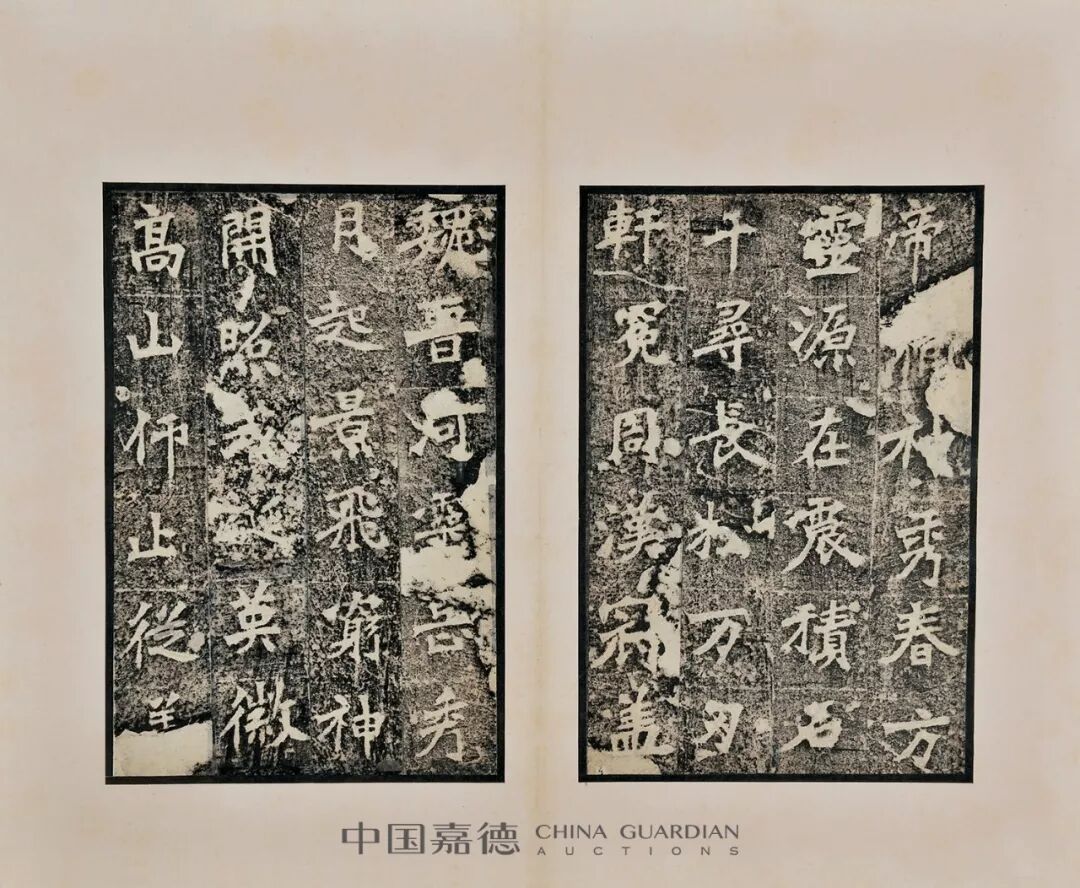 帝胤神秀春方
靈源在震積石
千尋長松万刃
軒冕周漢冠盖
魏晉河靈岳秀
月起景飛窮神
開照式誕英徽
髙山仰止從
中国嘉德 CHINA GUARDIAN
AUCTIONS